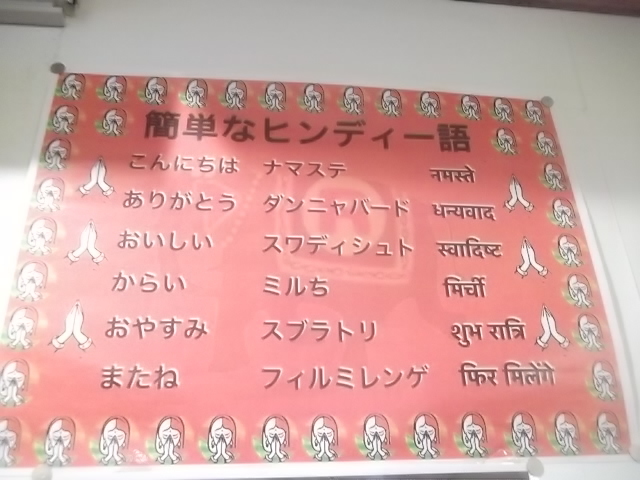 簡単なヒンディー語
こんにちは ナマステ नमस्ते
ありがとう ダンニャバード धन्यवाद
おいしい スワディシュト स्वादिष्ट
からい ミルち मिर्ची
おやすみ スブラトリ शुभ रात्रि
またね フィルミレンゲ फिर मिलेंगे